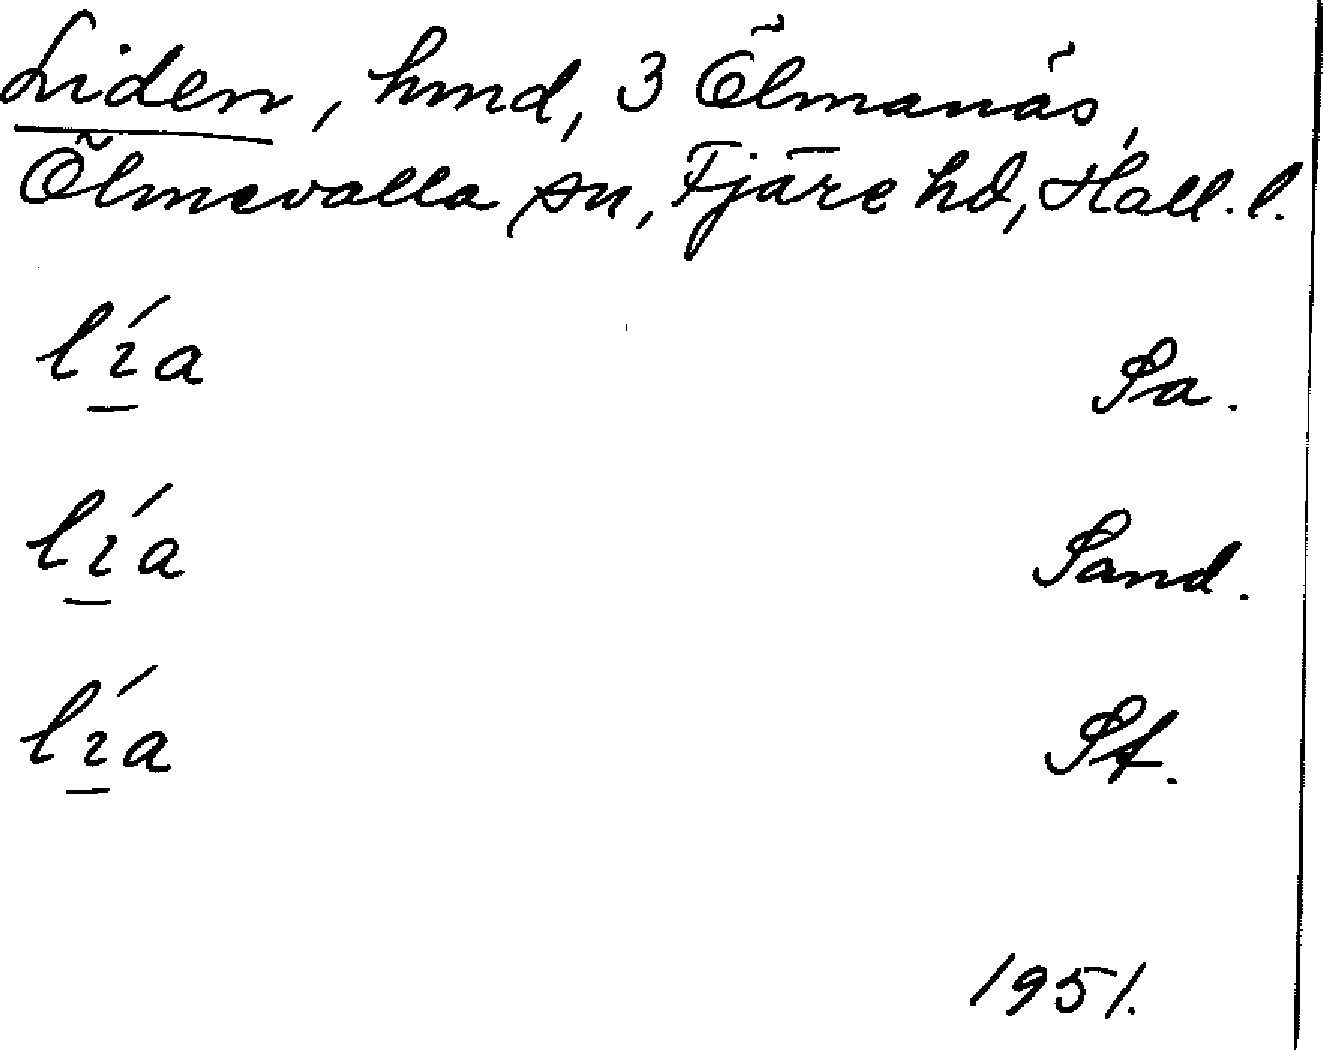 Liden, hmd, 3 Ölmanäs,
Ölmevalla sn, Fjäre hd, Hall. l.
lı̱́a Sa.
lı̱́a Sand.
lı̱́a St.
1951.